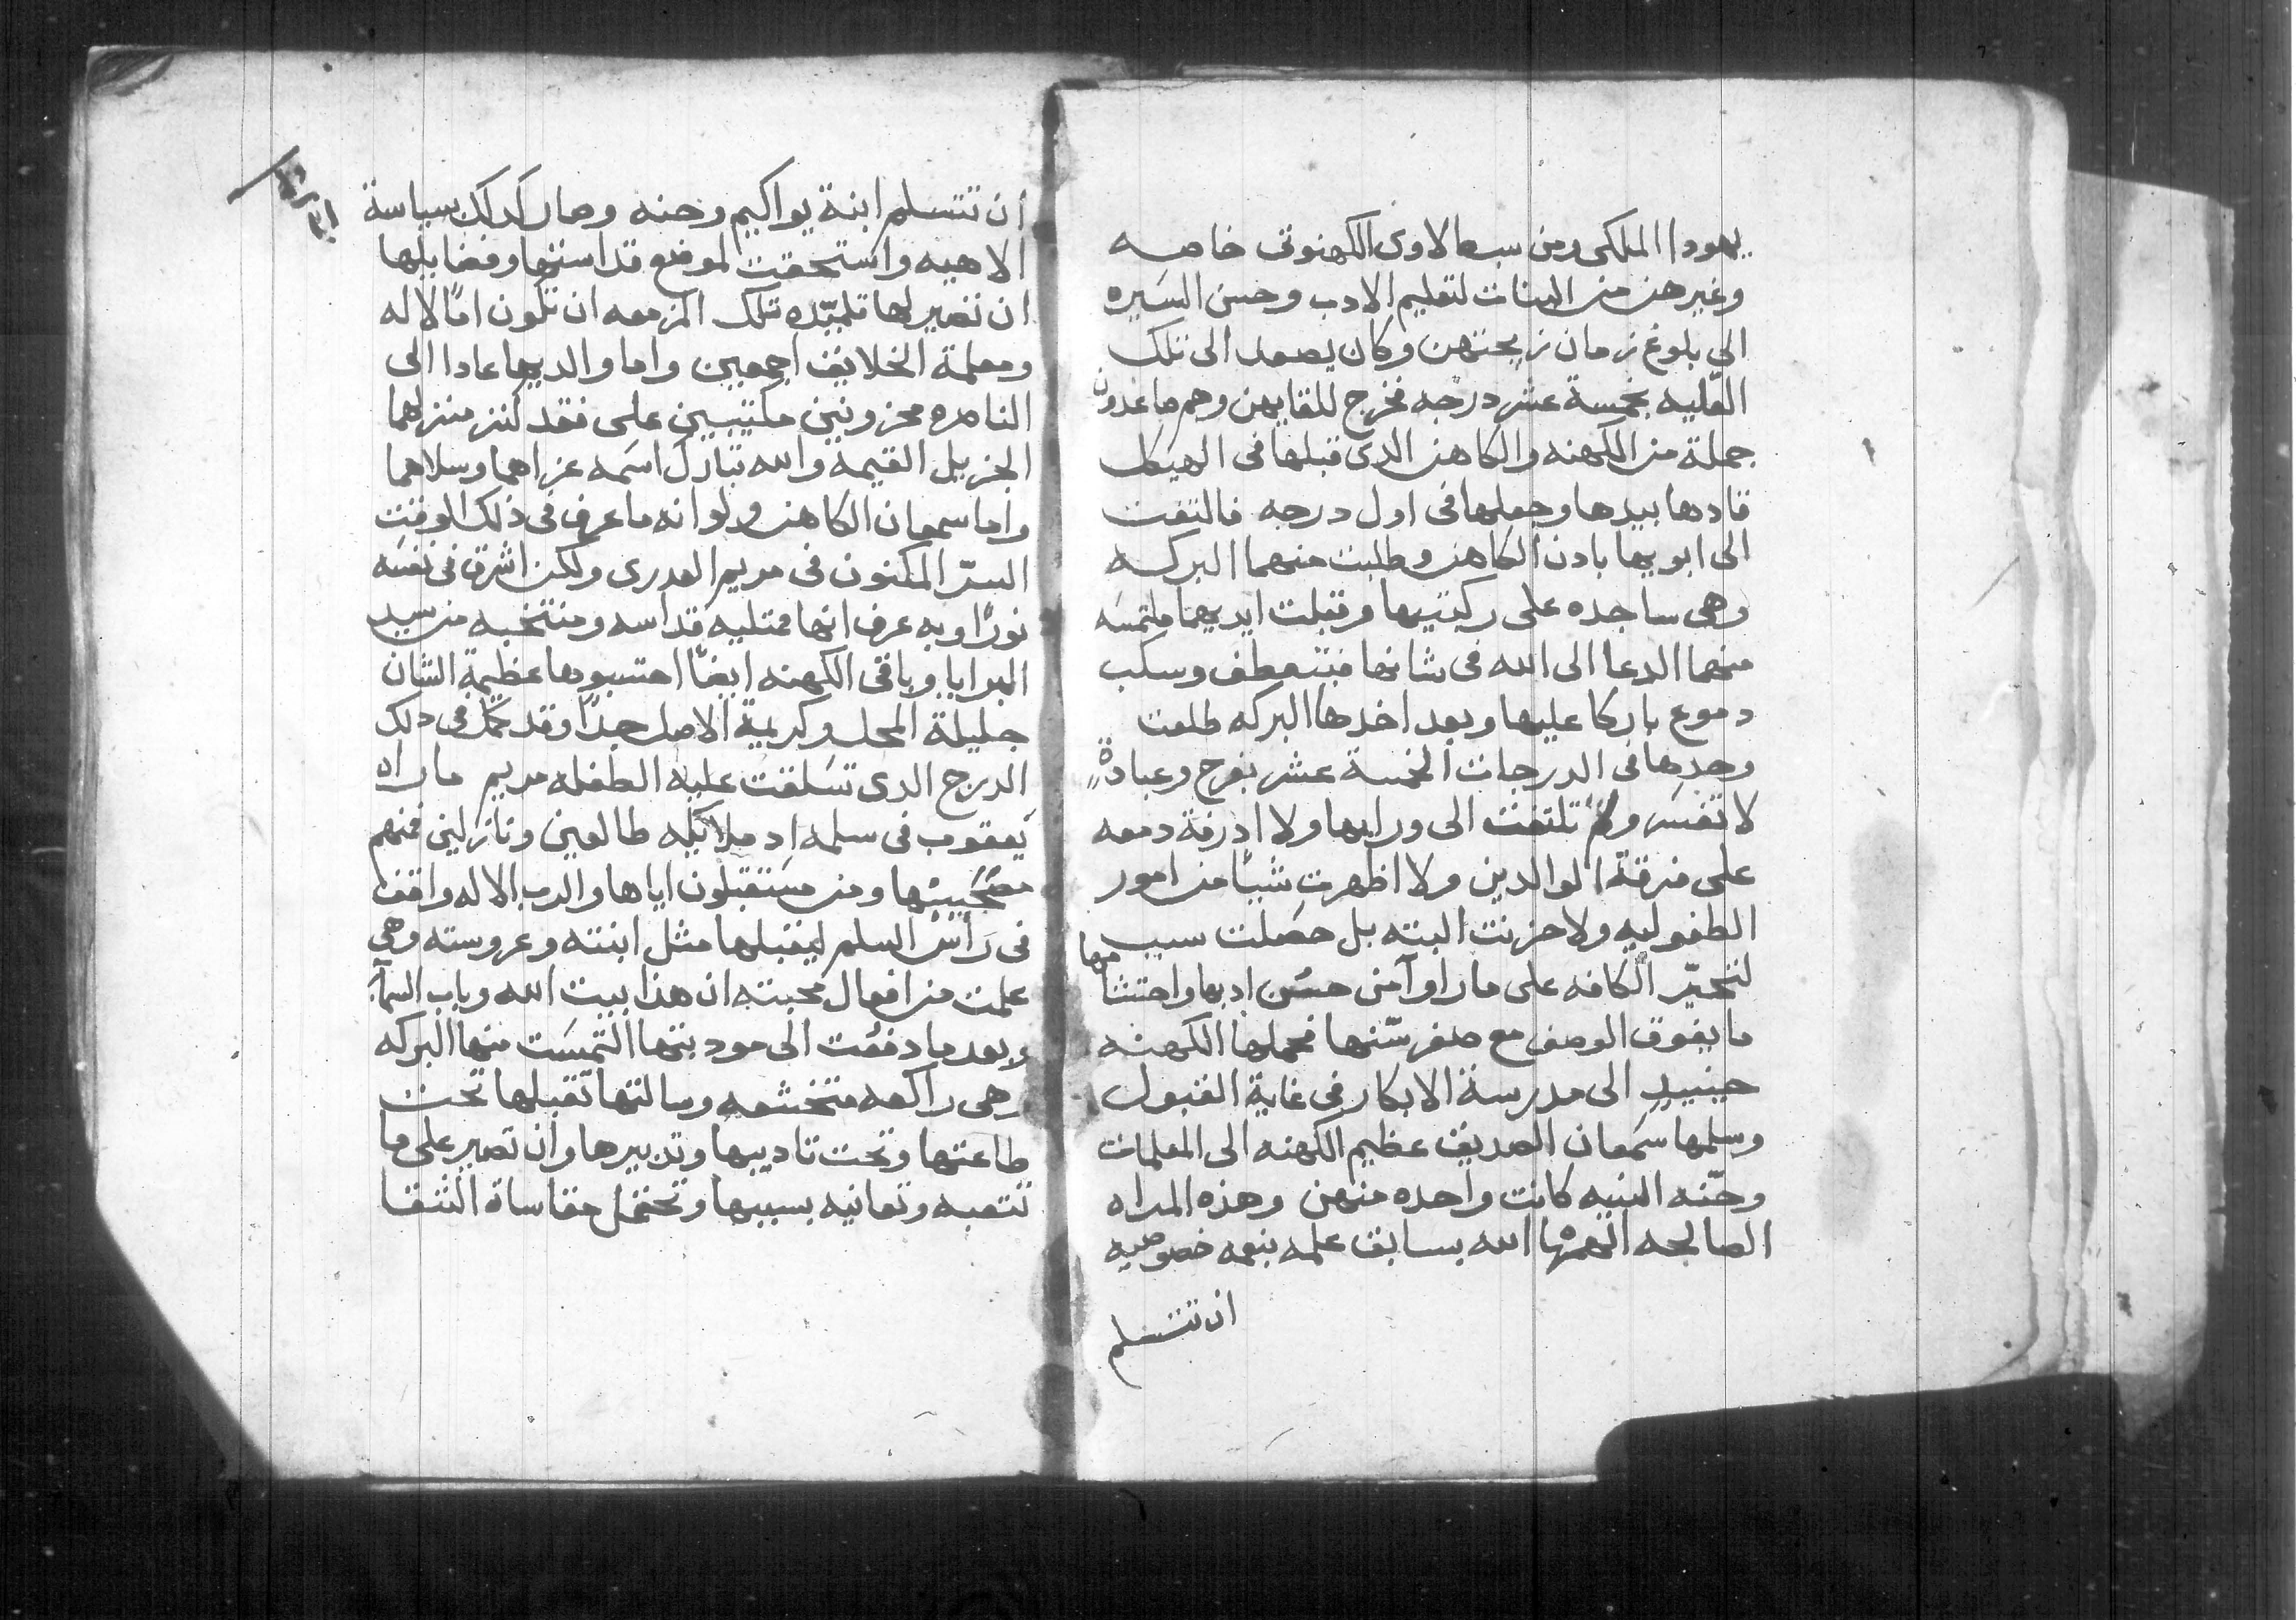 يهودا الملكى ومن سبط لاوى الكهنوتى خاصه
وغيرهن من البنات لتعليم الادب وحسن السَيره
الى بلوغ زمان زيجتهن وكان يصعد الى تلك
القّليه بخمسة عشر درجه فخرج للقايهن وهم صاعدون
جملة من الكهنه والكاهن الدى قبلها فى الهيكل
قادها بيدها وجعلها فى اول درجه فالتفت
الى ابويها بادن الكاهن وطلبت منهما البركه
وهى ساجده على ركبتيها وقبلت ايديهما ملتمسَه
منهما الدعا الى الله فى شانها فبتعطف وسكب
دموع باركا عليها وبعد اخدها البركه طلعت
وحدها فى الدرجات الخمسة عشر بفرح وعبادةٍ
لا تفسَر ولم تلتفت الى ورايها ولا ادرفة دمعه
على فرقة الوالدين ولا اظهرت شيًا من امور
الطفوليه ولا حزنت البته بل حصَلت سبب
لتحيّر الكافه على ما راوآ من حسُن ادبها واحتشامها
ما يفوق الوصف مع صغر سّنها فحملها الكهنه
حينيدٍ الى مدرسة الابكار فى غاية القبول
وسلمها سَمعان الصديق عظيم الكهنه الى المعلمات
وحّنه النبيه كانت واحده منهن وهذه المراه
الصالحه الهمها الله بسابق علمه بنعمه خصوصيه
ان تتسلم
ان تتسلم ابنة يواكيم وحنه وصار كدلك بسياسة
الاهيه واستحقت لموضع قداستها وفضايلها
ان تصير لها تلميّده تلك المزمعه ان تكون امًا لاله
ومعلمة الخلايق اجمعين واما والديها عادا الى
الناصره محزونين مكتيبين على فقد كنز منزلهما
الجزيل القيمه والله تبارك اسَمه عزاهما وسلاهما
واما سمعان الكاهن ولو انه ما عرف فى ذلك الوقت
السرّ المكنون فى مريم العدرى ولكن اشرق فى نفسَه
نورًا وبه عرف انها ممتليه قداسه ومنتخبه من سيد
البرايا وباقى الكهنه ايضًا احتسبوها عظيمة الشان
جليلة المحل وكريمة الاصل جدًا وقد كمّل فى دلك
الدرج الدى تسَلقت عليه الطفله مريم ما راه
يَعقوب فى سلمه اد ملايكه طالعين ونازلين فمنهم
مصُحَبيْنها ومن مستقبلون اياها والرب الاله واقفا
فى رَأس السلم ليقبلها مثل ابنته وعروسته وهي
علمت من افعال محبته ان هذا بيت الله وباب السمآ
وبعد ما دفعُت الى مودبتها التمسَت منها البركه
وهى راكعه متخشعه وسالتها تقبلها تحت
طاعتها وتحت تاديبها وتدبيرها وان تصبر على ما
تتعبه وتعانيه بسببها وتحتمل مقاساة الشقا